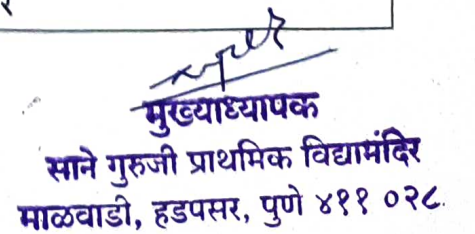 मुख्याध्यापक
साने गुरुजी प्राथमिक विद्यामंदिर
माळवाडी, हडपसर, पुणे ४११ ०२८.